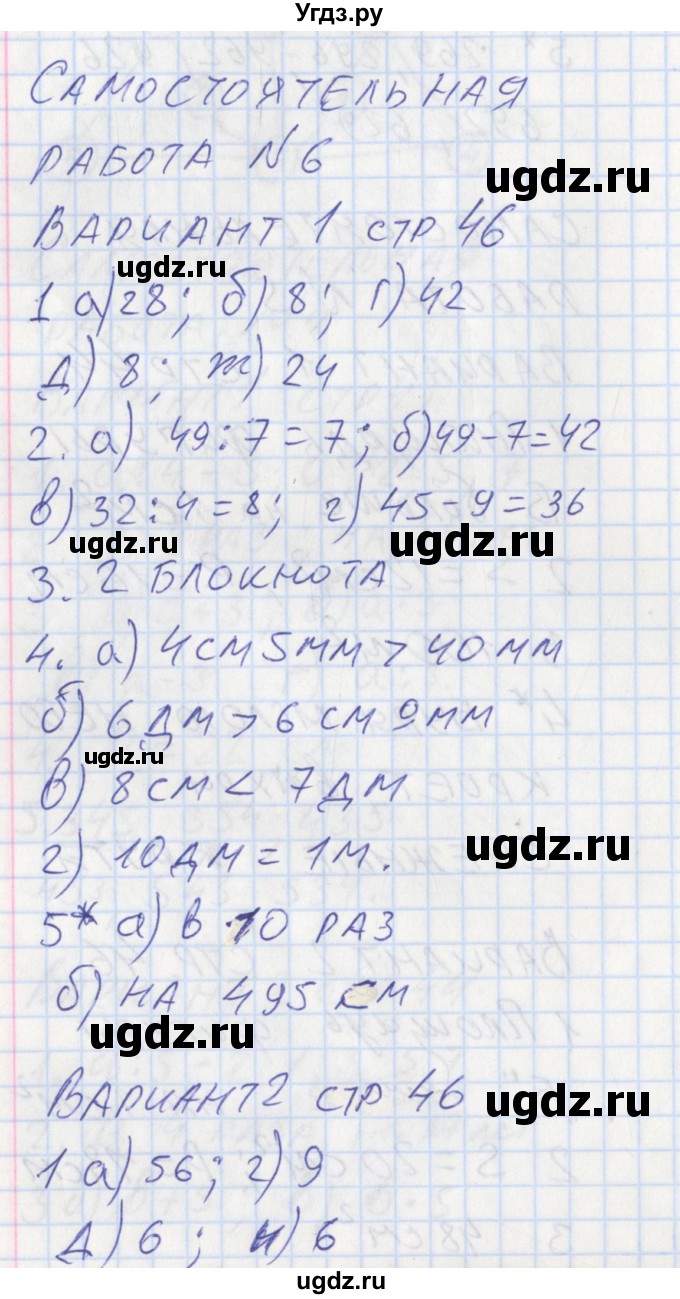 Угдз.ру
САМОСТОЯТЕЛЬНАЯ
РАБОТА №6
ugdz.ru
ВАРИАНТ 1 СТР 46
ugdz.ru
1 а) 28; б) 8; г) 42
д) 8; ж) 24
2. а) 49:7=7; б) 49-7=42
в) 32:4=8; г) 45-9=36
ugdz.ru ugdz.ru
3. 2 БЛОКНОТА
4. а) 4см 5мм > 40 мм
б) 6 дм > 6 см 9мм
ugdz.ru
в) 8 см < 7 дм
г) 10 дм = 1м.
ugdz.ru
5* а) в 10 РАЗ
б) НА 495 см
ugdz.ru
ВАРИАНТ 2 СТР 46
ugdz.ru
1 а) 56; г) 9
д) 6; и) 6
ugdz.ru